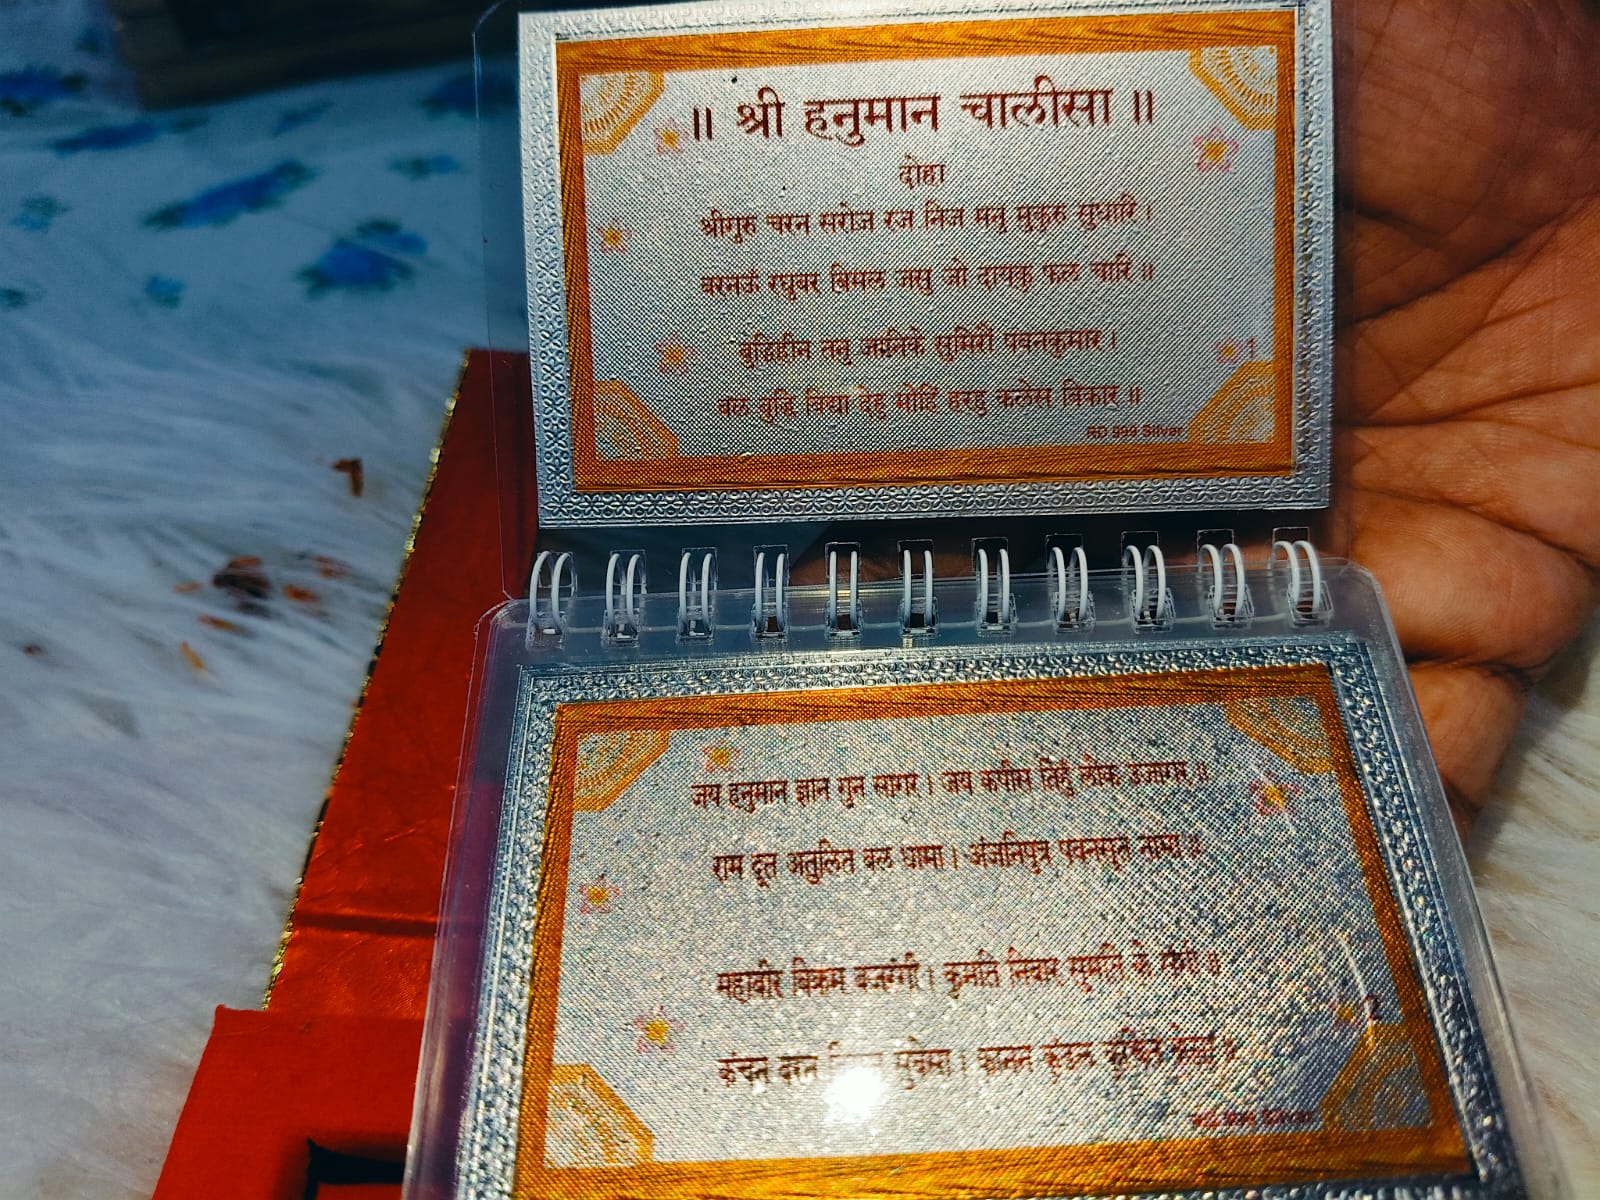 ॥ श्री हनुमान चालीसा ॥
दोहा
श्रीगुरु चरन सरोज रज निज मनु मुकुरु सुधारि ।
बरनऊँ रघुबर बिमल जसु जो दायकु फल चारि ॥
बुद्धिहीन तनु जानिके सुमिरौं पवनकुमार ।
1
बल बुद्धि विद्या देहु मोहिं हरहु कलेस विकार ॥
RD 999 Silver
जय हनुमान ज्ञान गुन सागर । जय कपीस तिहुँ लोक उजागर ॥
राम दूत अतुलित बल धामा । अंजनिपुत्र पवनसुत नामा ॥
महाबीर बिक्रम बजरंगी । कुमति निवार सुमति के संगी ॥
2
कंचन बरन सुबेसा । कानन कुंडल
RD 999 Silver